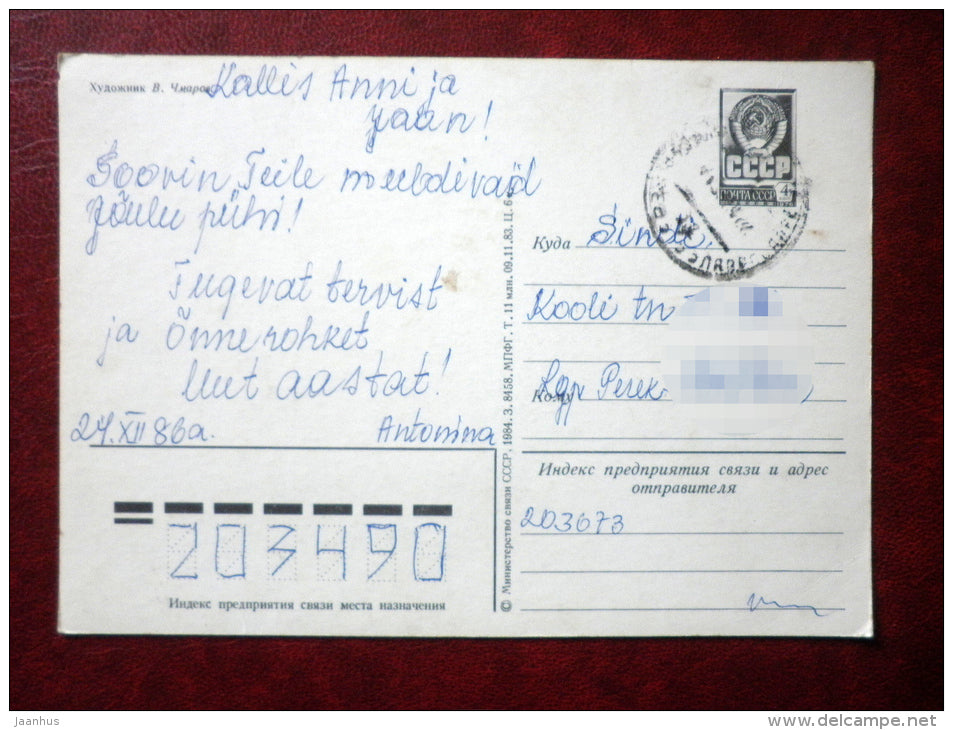 Художник В. Чмаров
Kallis Anni ja
Jaan!
Soovin Teile meeldivaid
Jõulu pühi!
Tugevat tervist
ja Õnnerohket
Uut aastat!
24.XII 86a.
Antonina
203490
Индекс предприятия связи места назначения
© Министерство связи СССР, 1984. З. 8458. МПФГ. Т. 11 млн. 09.11.83. Ц. 6
СССР
ПОЧТА СССР 4
Куда Sindi
Kooli tn
Кому Lgp Perek.
Индекс предприятия связи и адрес
отправителя
203673
Jaanhus
www.delcampe.net